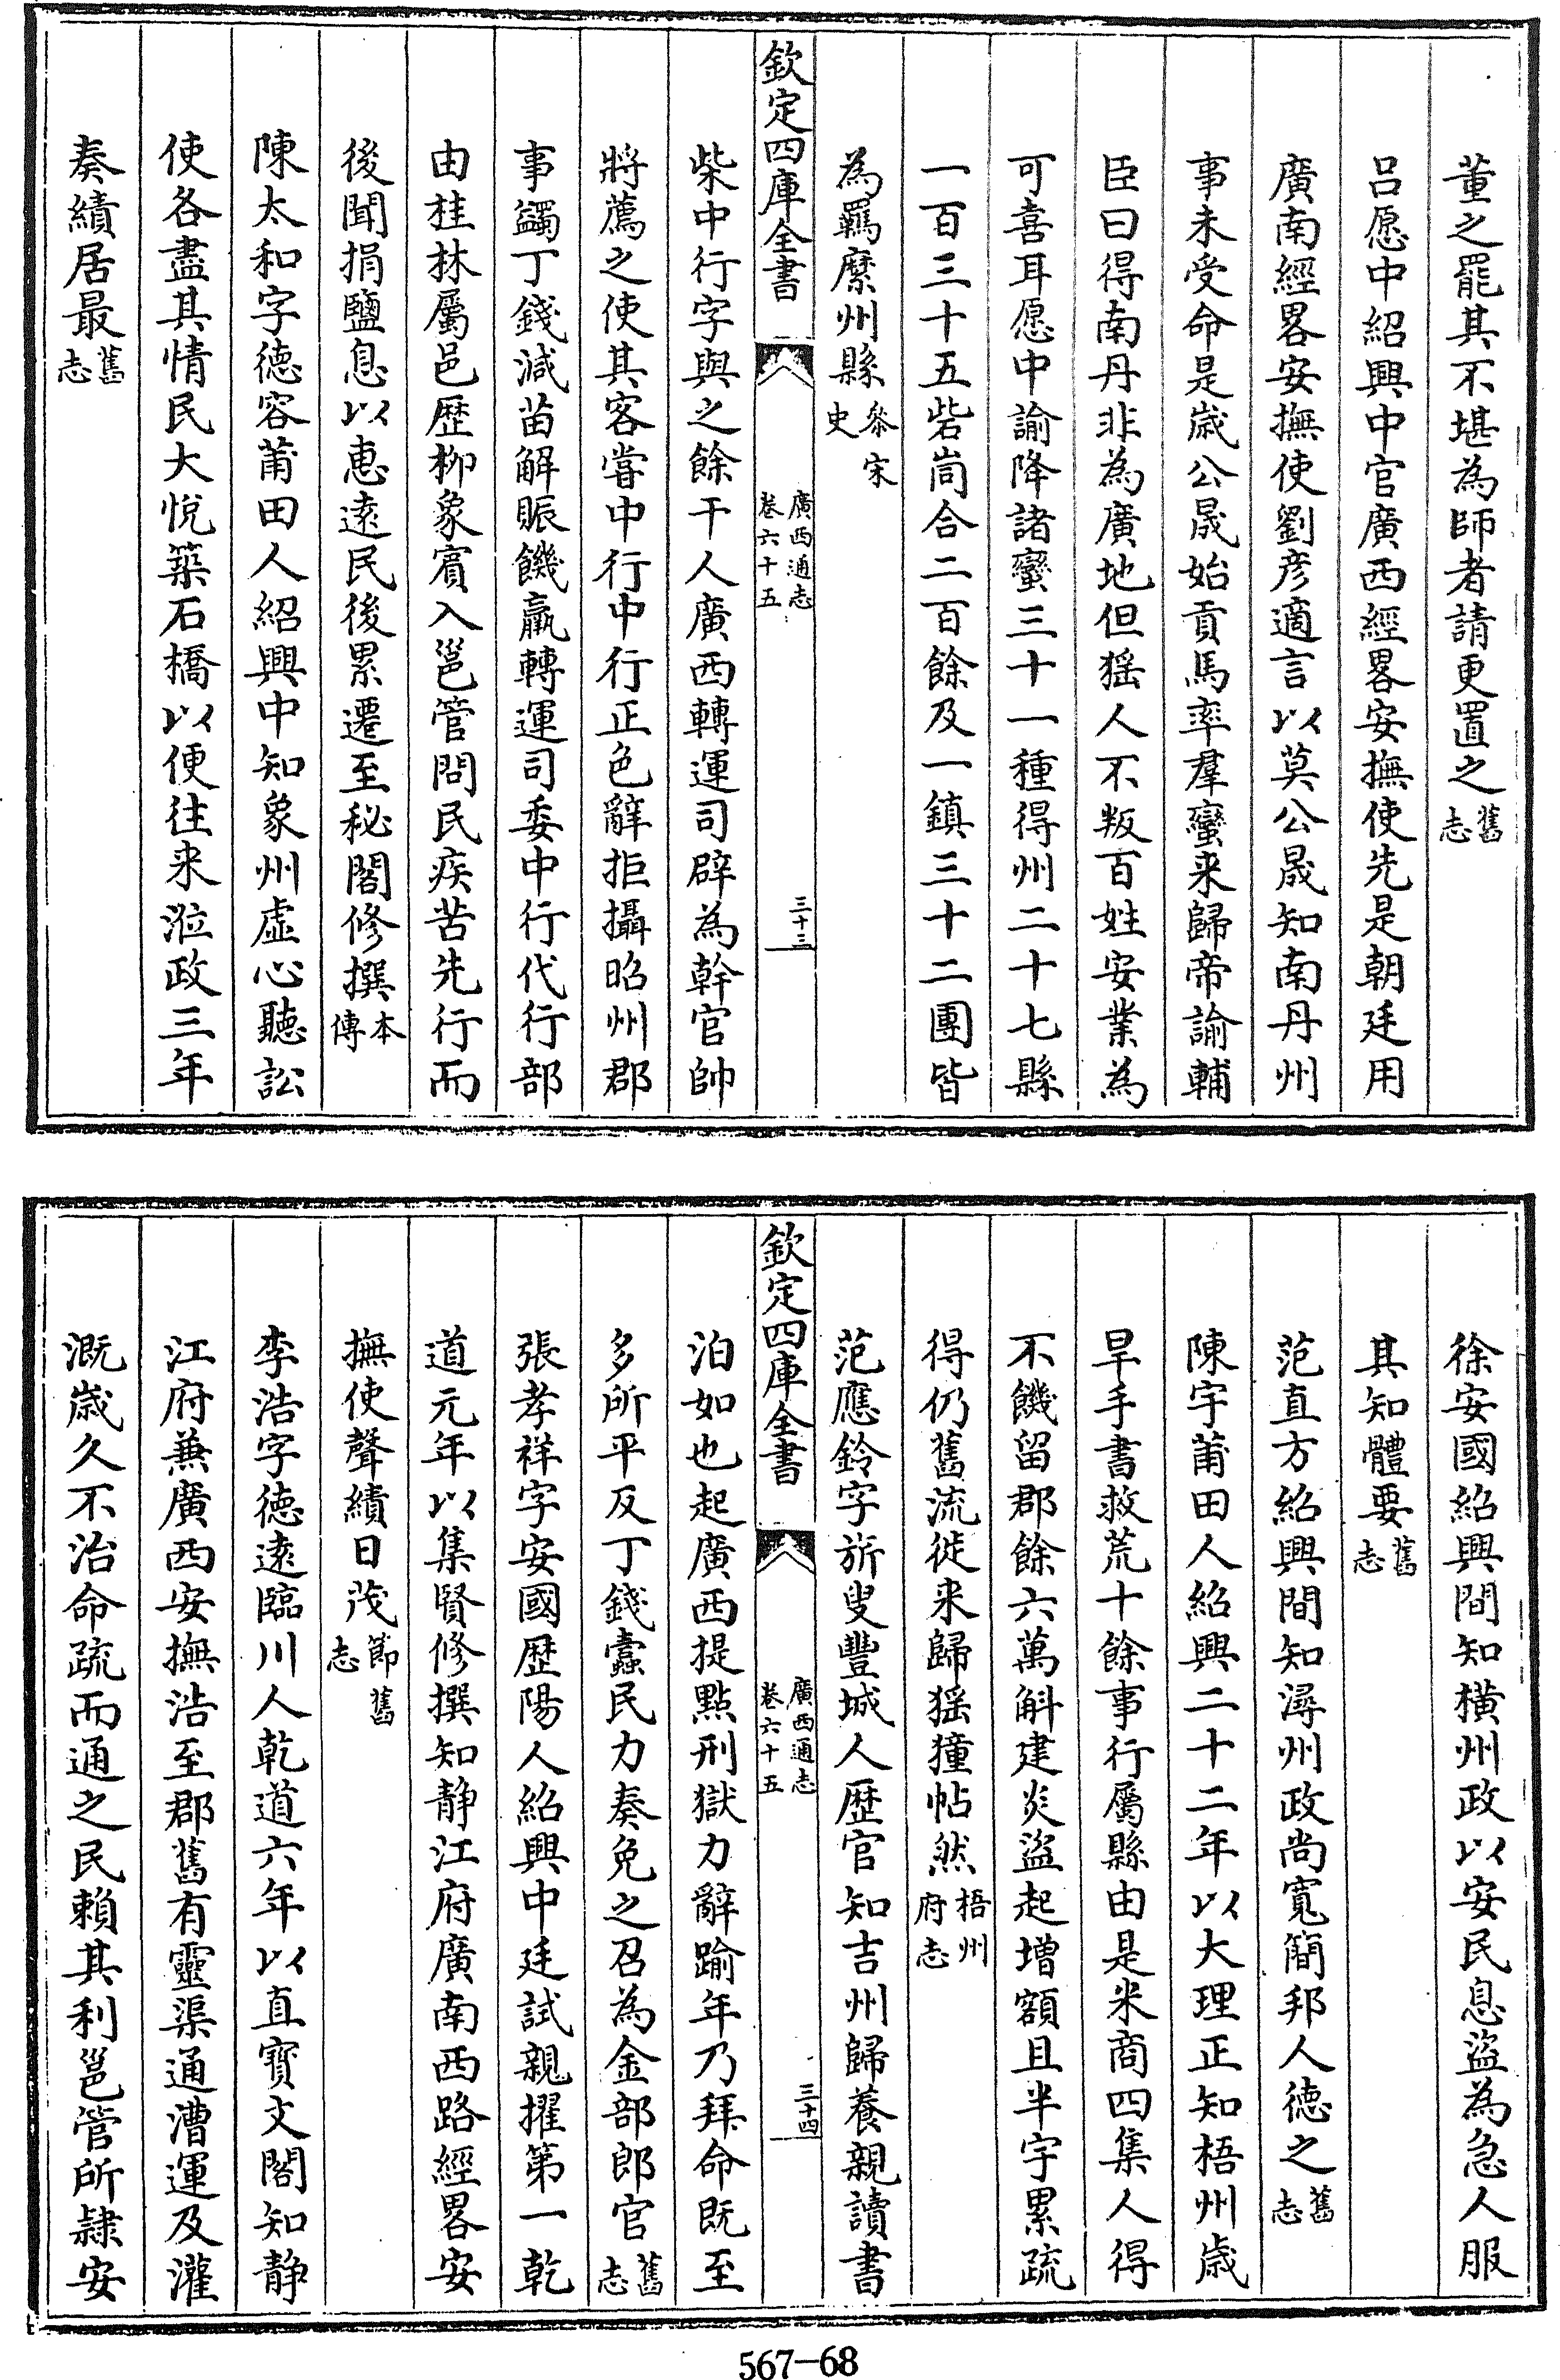 董之罷其不堪為師者請更置之舊志
呂愿中紹興中官廣西經畧安撫使先是朝廷用
廣南經畧安撫使劉彦適言以莫公晟知南丹州
事未受命是歳公晟始貢馬率羣蠻来歸帝諭輔
臣曰得南丹非為廣地但猺人不叛百姓安業為
可喜耳愿中諭降諸蠻三十一種得州二十七縣
一百三十五砦峝合二百餘及一鎮三十二團皆
為羈縻州縣叅宋史
欽定四庫全書
廣西通志
卷六十五
三十三
柴中行字與之餘干人廣西轉運司辟為幹官帥
將薦之使其客嘗中行中行正色辭拒攝昭州郡
事蠲丁錢減苗解賑饑羸轉運司委中行代行部
由桂林屬邑歴柳象賔入邕管問民疾苦先行而
後聞捐鹽息以惠逺民後累遷至秘閣修撰本傳
陳太和字德容莆田人紹興中知象州虛心聽訟
使各盡其情民大悅築石橋以便往来涖政三年
奏績居最舊志
徐安國紹興間知横州政以安民息盜為急人服
其知體要舊志
范直方紹興間知潯州政尚寛簡邦人德之舊志
陳宇莆田人紹興二十二年以大理正知梧州歳
旱手書救荒十餘事行屬縣由是米商四集人得
不饑留郡餘六萬斛建炎盜起增額且半宇累疏
得仍舊流徙来歸猺獞帖然梧州府志
范應鈴字旂叟豐城人歴官知吉州歸養親讀書
欽定四庫全書
廣西通志
卷六十五
三十四
泊如也起廣西提㸃刑獄力辭踰年乃拜命既至
多所平反丁錢蠧民力奏免之召為金部郎官舊志
張孝祥字安國歴陽人紹興中廷試親擢第一乾
道元年以集賢修撰知静江府廣南西路經畧安
撫使聲績日茂節舊志
李浩字徳逺臨川人乾道六年以直寳文閣知静
江府兼廣西安撫浩至郡舊有靈渠通漕運及灌
溉歳久不治命疏而通之民賴其利邕管所隷安
567-68